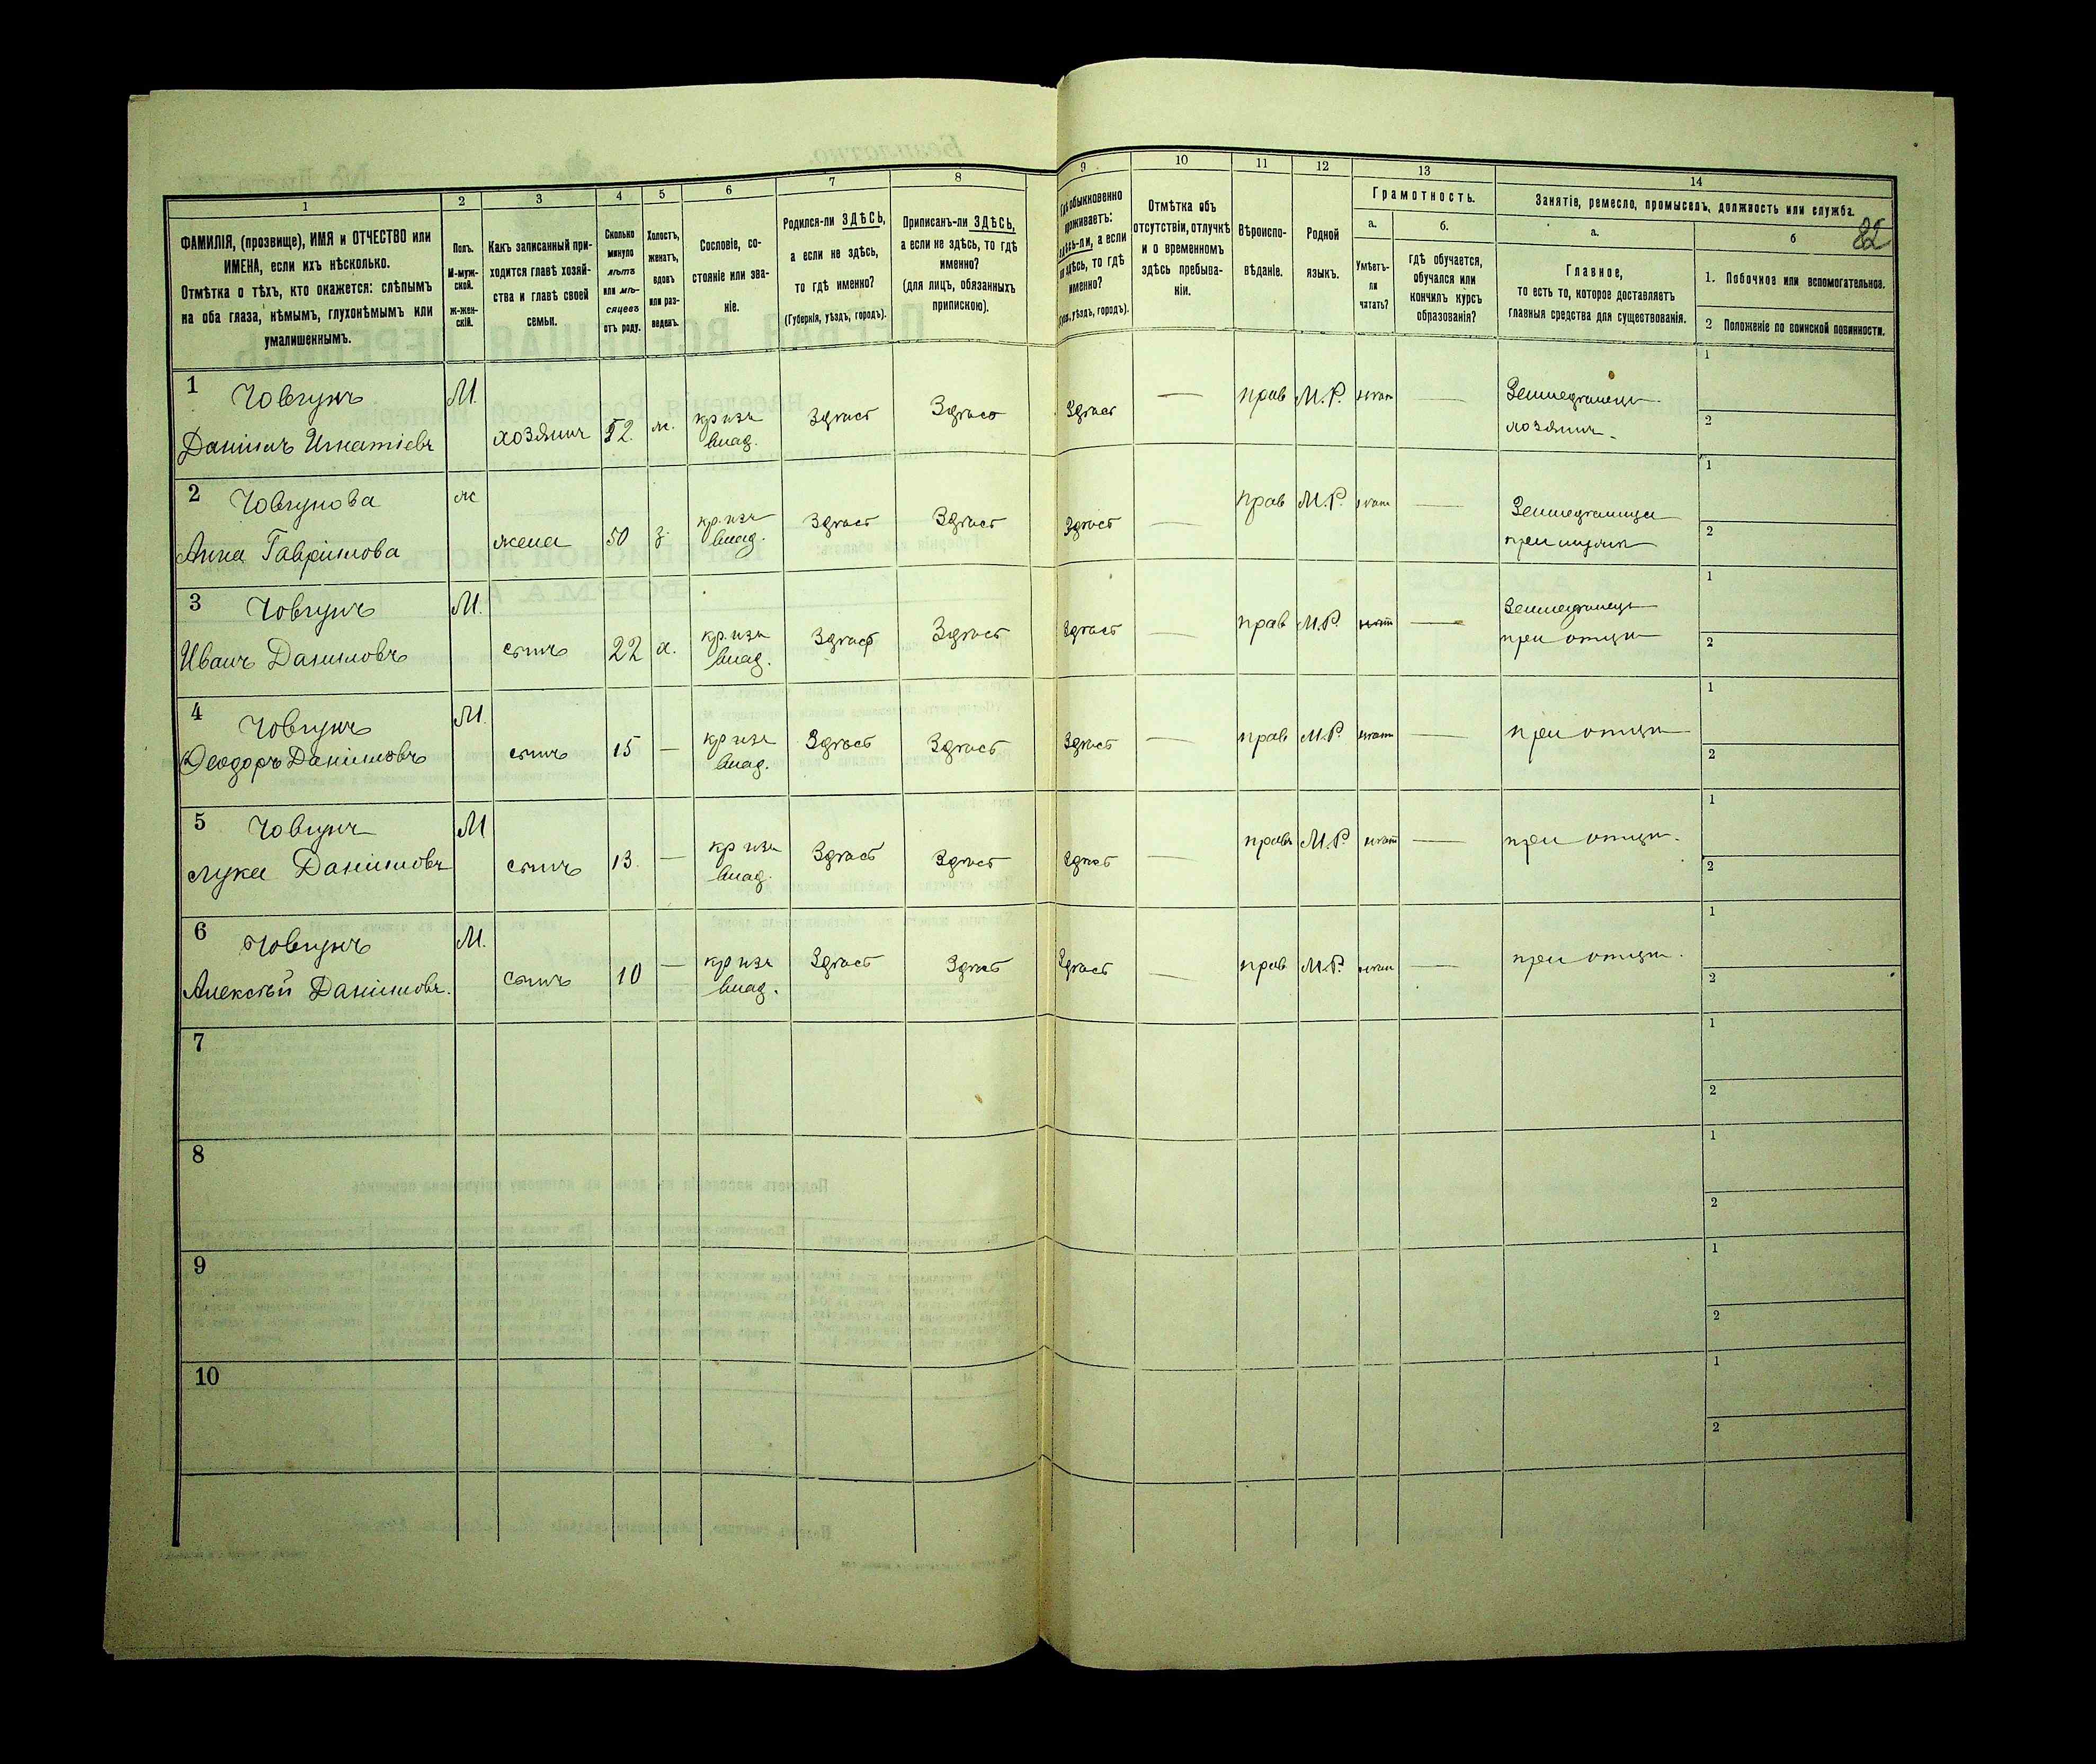 82
1 2 3 4 5 6 7 8 9 10 11 12 13 14
ФАМИЛІЯ, (прозвище), ИМЯ и ОТЧЕСТВО или
ИМЕНА, если ихъ нѣсколько.
Отмѣтка о тѣхъ, кто окажется: слѣпымъ
на оба глаза, нѣмымъ, глухонѣмымъ или
умалишеннымъ.
Полъ.
М-муж-
ской.
ж-жен-
скій.
Какъ записанный при-
ходится главѣ хозяй-
ства и главѣ своей
семьи.
Сколько
минуло
лѣтъ
или мѣ-
сяцевъ
отъ роду.
Холостъ,
женатъ,
вдовъ
или раз-
веденъ.
Сословіе, со-
стояніе или зва-
ніе.
Родился-ли ЗДѢСЬ,
а если не здѣсь,
то гдѣ именно?
(Губернія, уѣздъ, городъ).
Приписанъ-ли ЗДѢСЬ,
а если не здѣсь, то гдѣ
именно?
(для лицъ, обязанныхъ
припискою).
Гдѣ обыкновенно
проживаетъ:
здѣсь-ли, а если
не здѣсь, то гдѣ
именно?
уѣздъ, городъ).
Отмѣтка объ
отсутствіи, отлучкѣ
и о временномъ
здѣсь пребыва-
ніи.
Вѣроиспо-
вѣданіе.
Родной
языкъ.
Грамотность.
а. б.
Умѣетъ-
ли
читать?
гдѣ обучается,
обучался или
кончилъ курсъ
образованія?
Занятіе, ремесло, промыселъ, должность или служба.
а. б
Главное,
то есть то, которое доставляетъ
главныя средства для существованія.
1. Побочное или вспомогательное.
2 Положеніе по воинской повинности.
1 Човгунъ М. кр. изъ Здѣсь Здѣсь Здѣсь — прав М.Р. нѣтъ — Земледѣлецъ 1
Данiилъ Игнатіевъ хозяинъ 52. ж. влад. хозяинъ. 2
2 Човгунова ж кр. изъ Здѣсь Здѣсь Здѣсь — прав М.Р. нѣтъ — Земледѣлица 1
Анна Гаврiилова жена 50 з. влад. при мужѣ 2
3 Човгунъ М. кр. изъ Здѣсь Здѣсь Здѣсь — прав М.Р. нѣтъ — Земледѣлецъ 1
Иванъ Даниловъ сынъ 22 х. влад. при отцѣ 2
4 Човгунъ М. кр изъ Здѣсь Здѣсь Здѣсь — прав М.Р. нѣтъ — при отцѣ 1
Ѳеодоръ Данiиловъ сынъ 15 — влад. 2
5 Човгунъ М кр изъ Здѣсь Здѣсь Здѣсь — правъ М.Р. нѣтъ — при отцѣ. 1
Лука Данiиловъ сынъ 13. — влад. 2
6 Човгунъ М. кр изъ Здѣсь Здѣсь Здѣсь — прав М.Р. нѣтъ — при отцѣ. 1
Алексѣй Данiиловъ. сынъ 10 — влад. 2
7 1
2
8 1
2
9 1
2
10 1
2